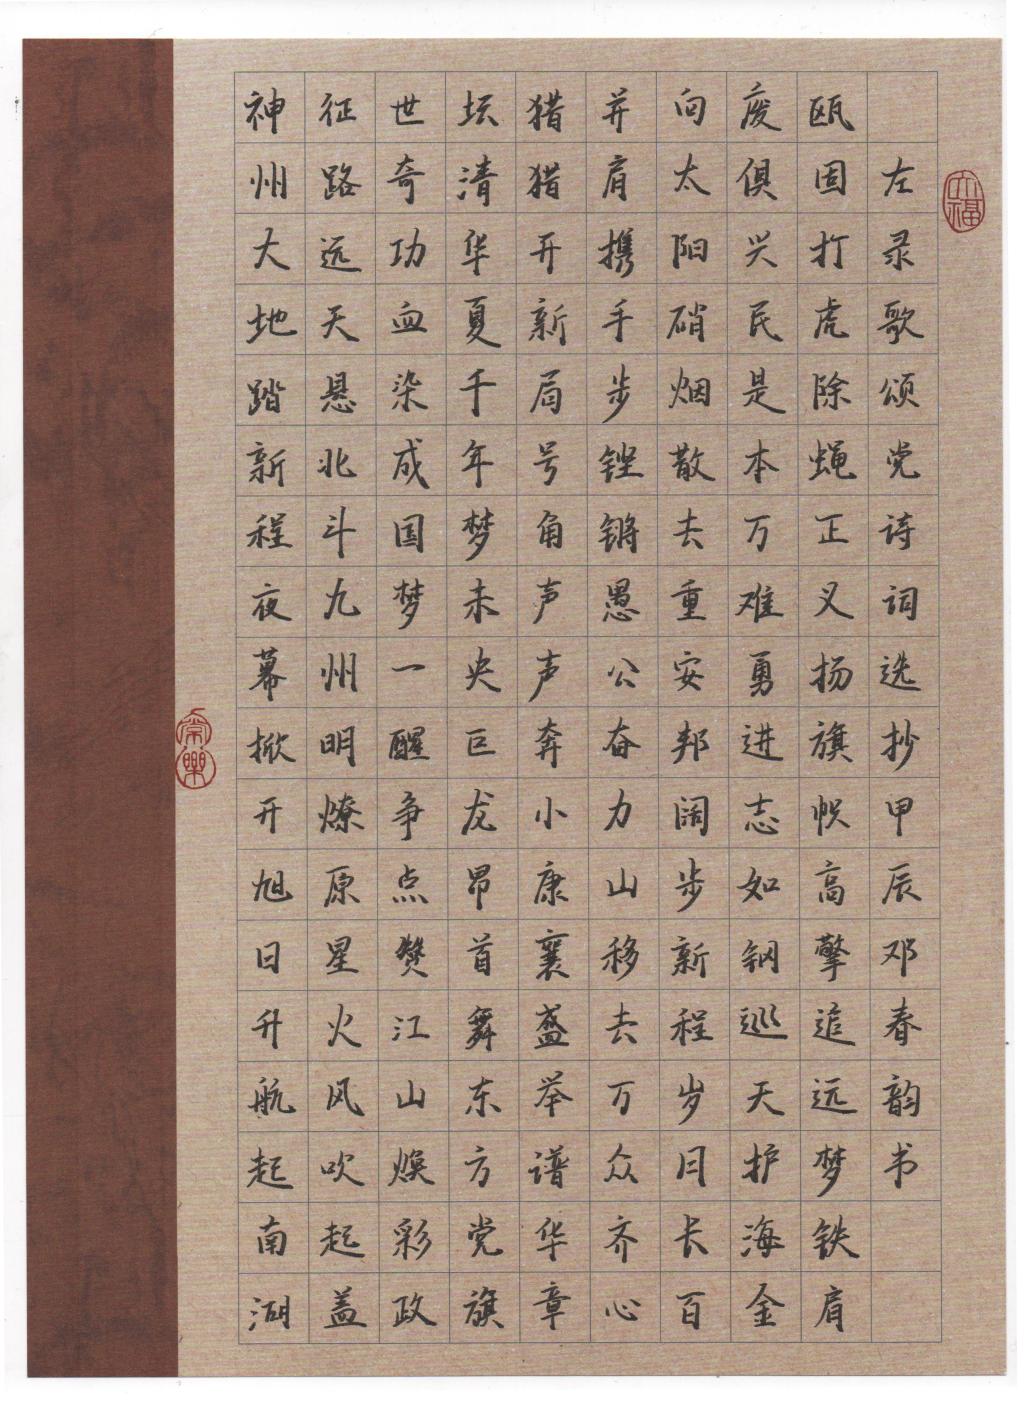 神州大地踏新程夜幕掀开旭日升航起南湖
征路远天悬北斗九州明燎原星火风吹起盖
世奇功血染成国梦一醒争点赞江山焕彩政
坛清华夏千年梦未央巨龙昂首舞东方党旗
猎猎开新局号角声声奔小康襄盛举谱华章
并肩携手步铿锵愚公奋力山移去万众齐心
向太阳硝烟散去重安邦阔步新程岁月长百
废俱兴民是本万难勇进志如钢巡天护海金
瓯固打虎除蝇正义扬旗帜高擎追远梦铁肩
左录歌颂党诗词选抄甲辰邓春韵书
常樂